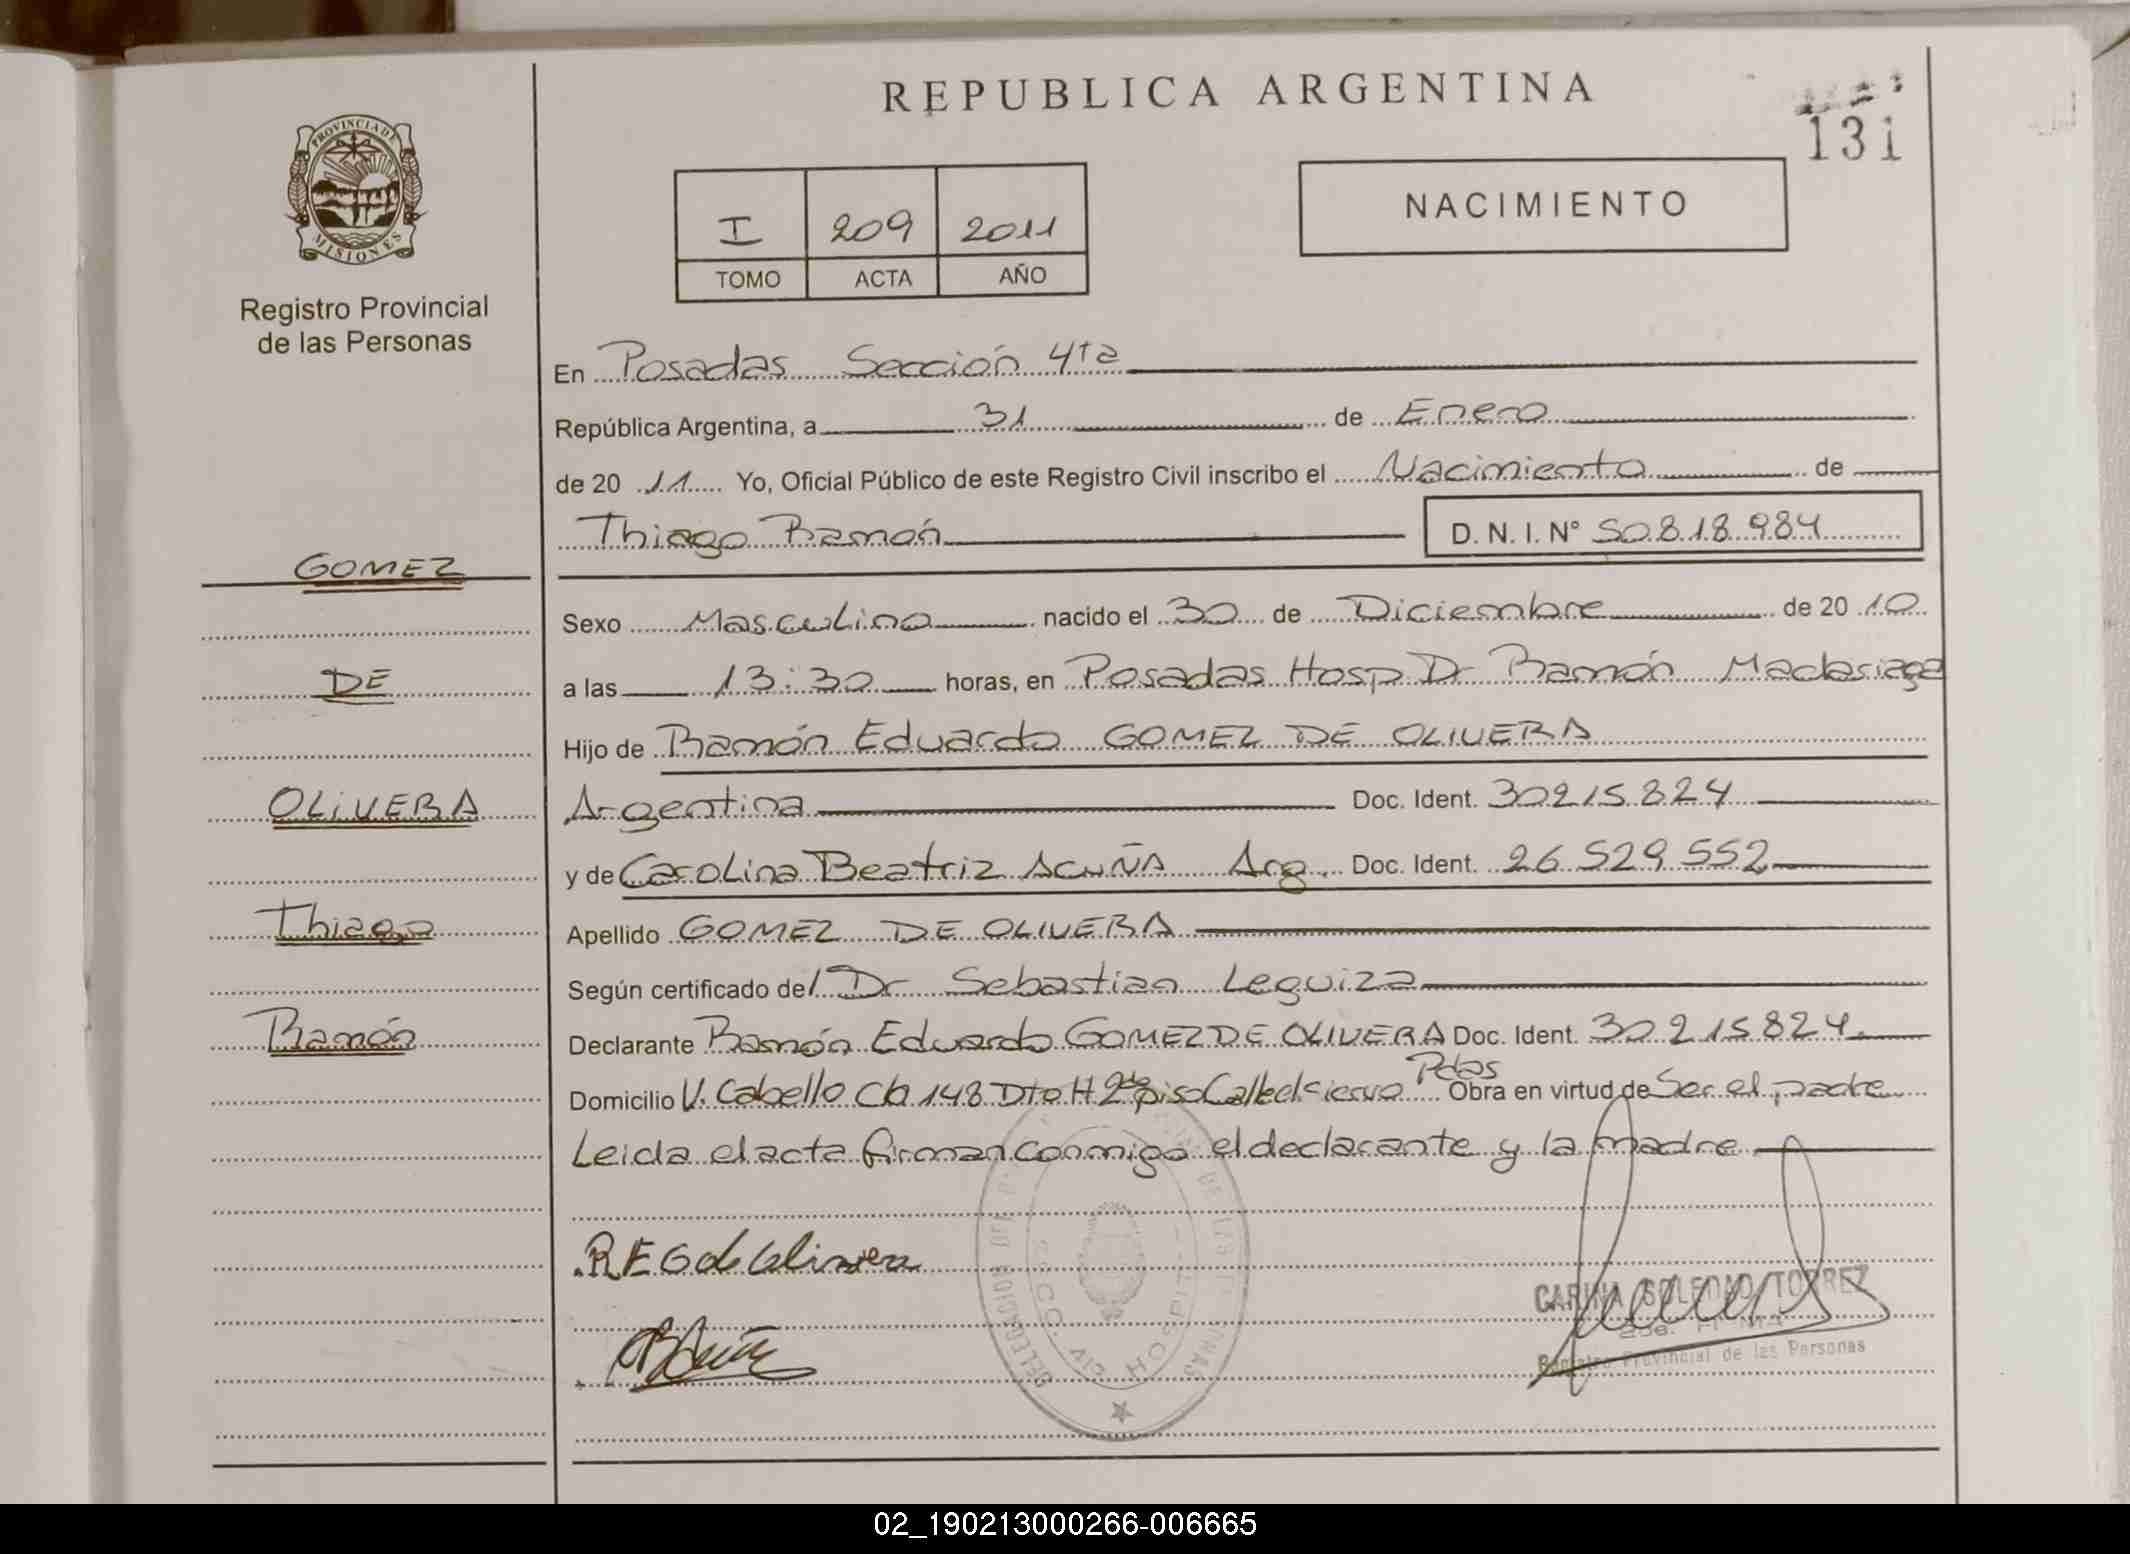 REPUBLICA ARGENTINA
131
PROVINCIA DE
MISIONES
Registro Provincial
de las Personas
I 209 2011
TOMO ACTA AÑO
NACIMIENTO
En Posadas Sección 4ta
República Argentina, a 31 de Enero
de 20 11 Yo, Oficial Público de este Registro Civil inscribo el Nacimiento de
Thiago Ramón D. N. I. N° 50.818.984
GOMEZ
DE
OLIVERA
Thiago
Ramón
Sexo Masculino nacido el 30 de Diciembre de 20 10
a las 13:30 horas, en Posadas Hosp Dr Ramón Madariaga
Hijo de Ramón Eduardo GOMEZ DE OLIVERA
Argentina Doc. Ident. 30215824
y de Carolina Beatriz ACUÑA Arg. Doc. Ident. 26.529.552
Apellido GOMEZ DE OLIVERA
Según certificado del Dr Sebastian Leguiza
Declarante Ramón Eduardo GOMEZ DE OLIVERA Doc. Ident. 30.215.824
Domicilio V. Cabello Ch 148 Dto H 2do piso Pdas Obra en virtud de Ser el padre
Leida el acta firman conmigo el declarante y la madre
R.E G de Olivera
CARINA SOLEDAD TORREZ
Registro Provincial de las Personas
02_190213000266-006665